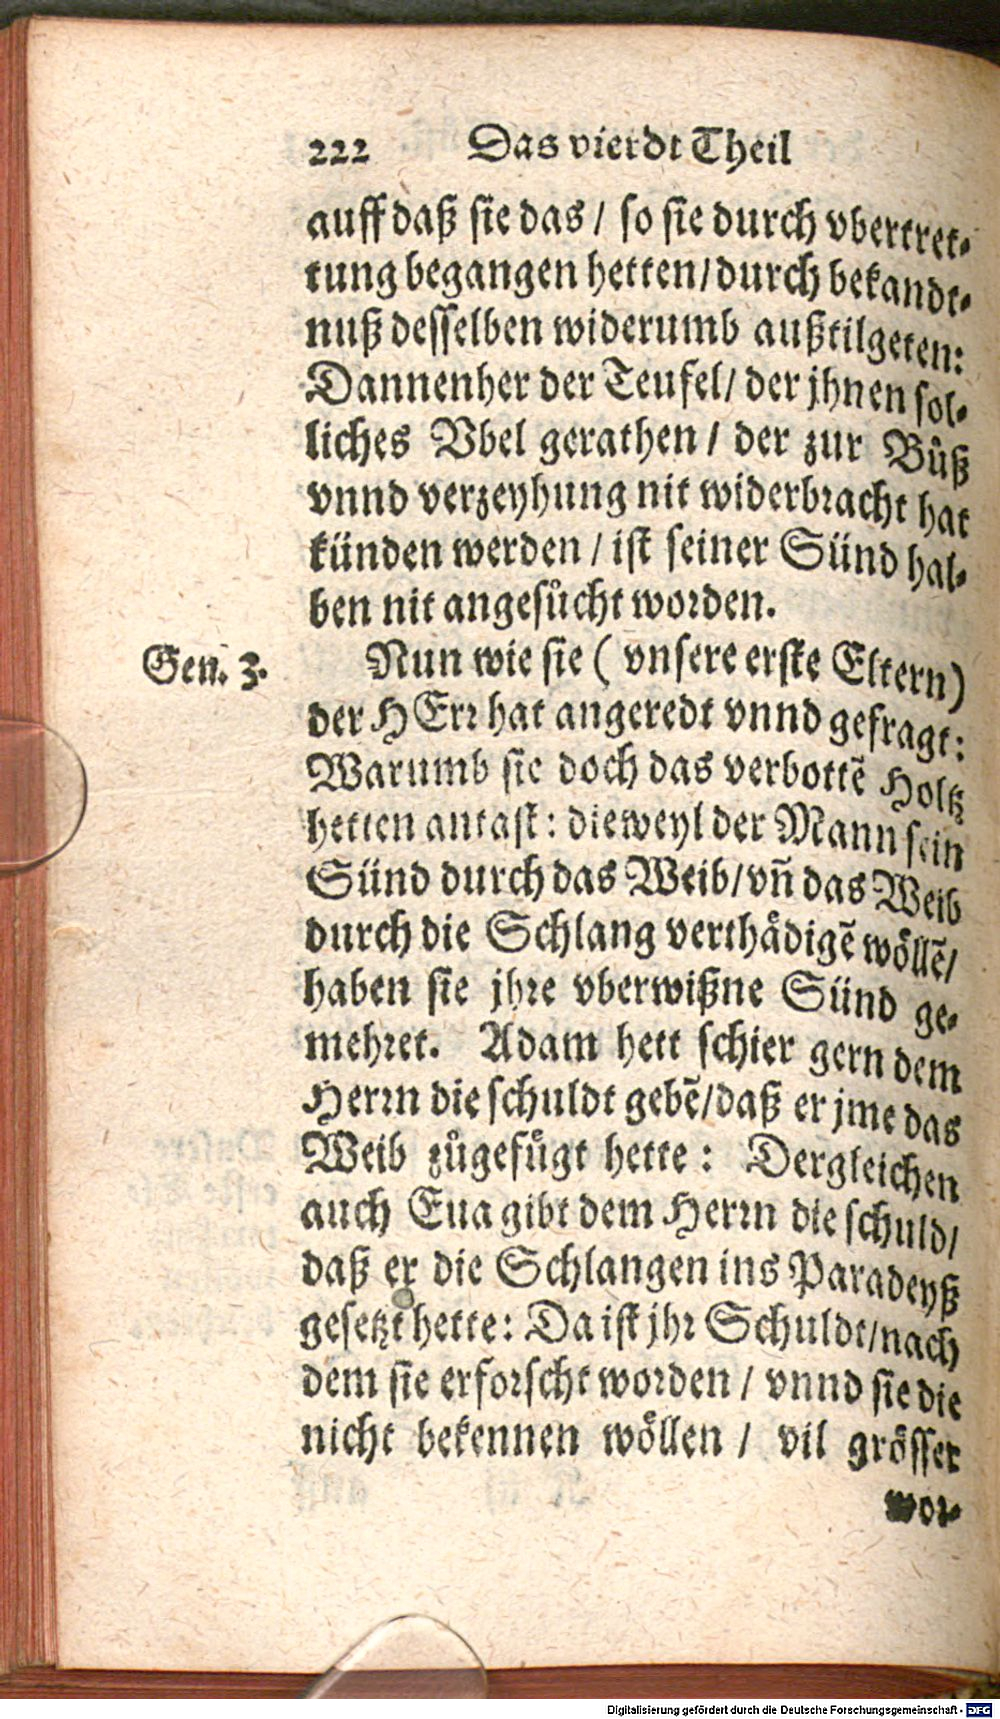 222 Das vierdt Theil
auff daß sie das / so sie durch vbertret-
tung begangen hetten / durch bekandt-
nuß desselben widerumb außtilgeten:
Dannenher der Teufel / der jhnen sol-
liches Vbel gerathen / der zur Bůß
vnnd verzeyhung nit widerbracht hat
künden werden / ist seiner Sünd hal-
ben nit angesůcht worden.
Gen. 3. Nun wie sie ( vnsere erste Eltern)
der HErr hat angeredt vnnd gefragt:
Warumb sie doch das verbottẽ Holtz
hetten antast: dieweyl der Mann sein
Sünd durch das Weib / vñ das Weib
durch die Schlang verthädigẽ wöllẽ /
haben sie jhre vberwißne Sünd ge-
mehret. Adam hett schier gern dem
Herrn die schuldt gebẽ / daß er jme das
Weib zůgefügt hette : Dergleichen
auch Eua gibt dem Herrn die schuld /
daß er die Schlangen ins Paradeyß
gesetzt hette: Da ist jhr Schuldt / nach
dem sie erforscht worden / vnnd sie die
nicht bekennen wöllen / vil grösser
wor-
Digitalisierung gefördert durch die Deutsche Forschungsgemeinschaft - DFG